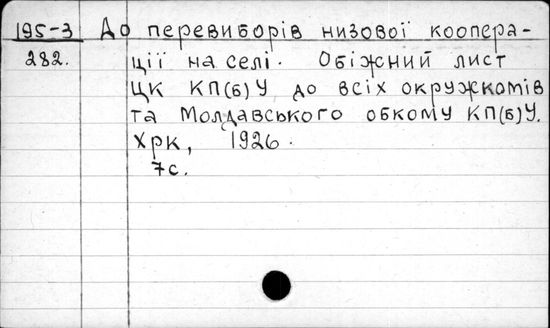 195-3 До перевиборів низової коопера-
282. ції на селі. Обіжний лист
ЦК КП(б)У до всіх окружкомів
та Молдавського обкому КП(б)У.
Хрк, 1926.
7с.